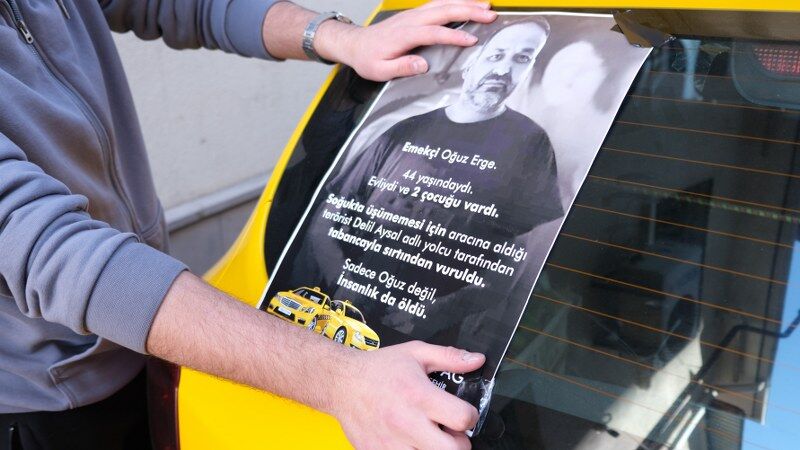 Emekçi Oğuz Erge.
44 yaşındaydı.
Evliydi ve 2 çocuğu vardı.
Soğukta üşümemesi için aracına aldığı
terörist Delil Aysal adlı yolcu tarafından
tabancayla sırtından vuruldu.
Sadece Oğuz değil,
İnsanlık da öldü.